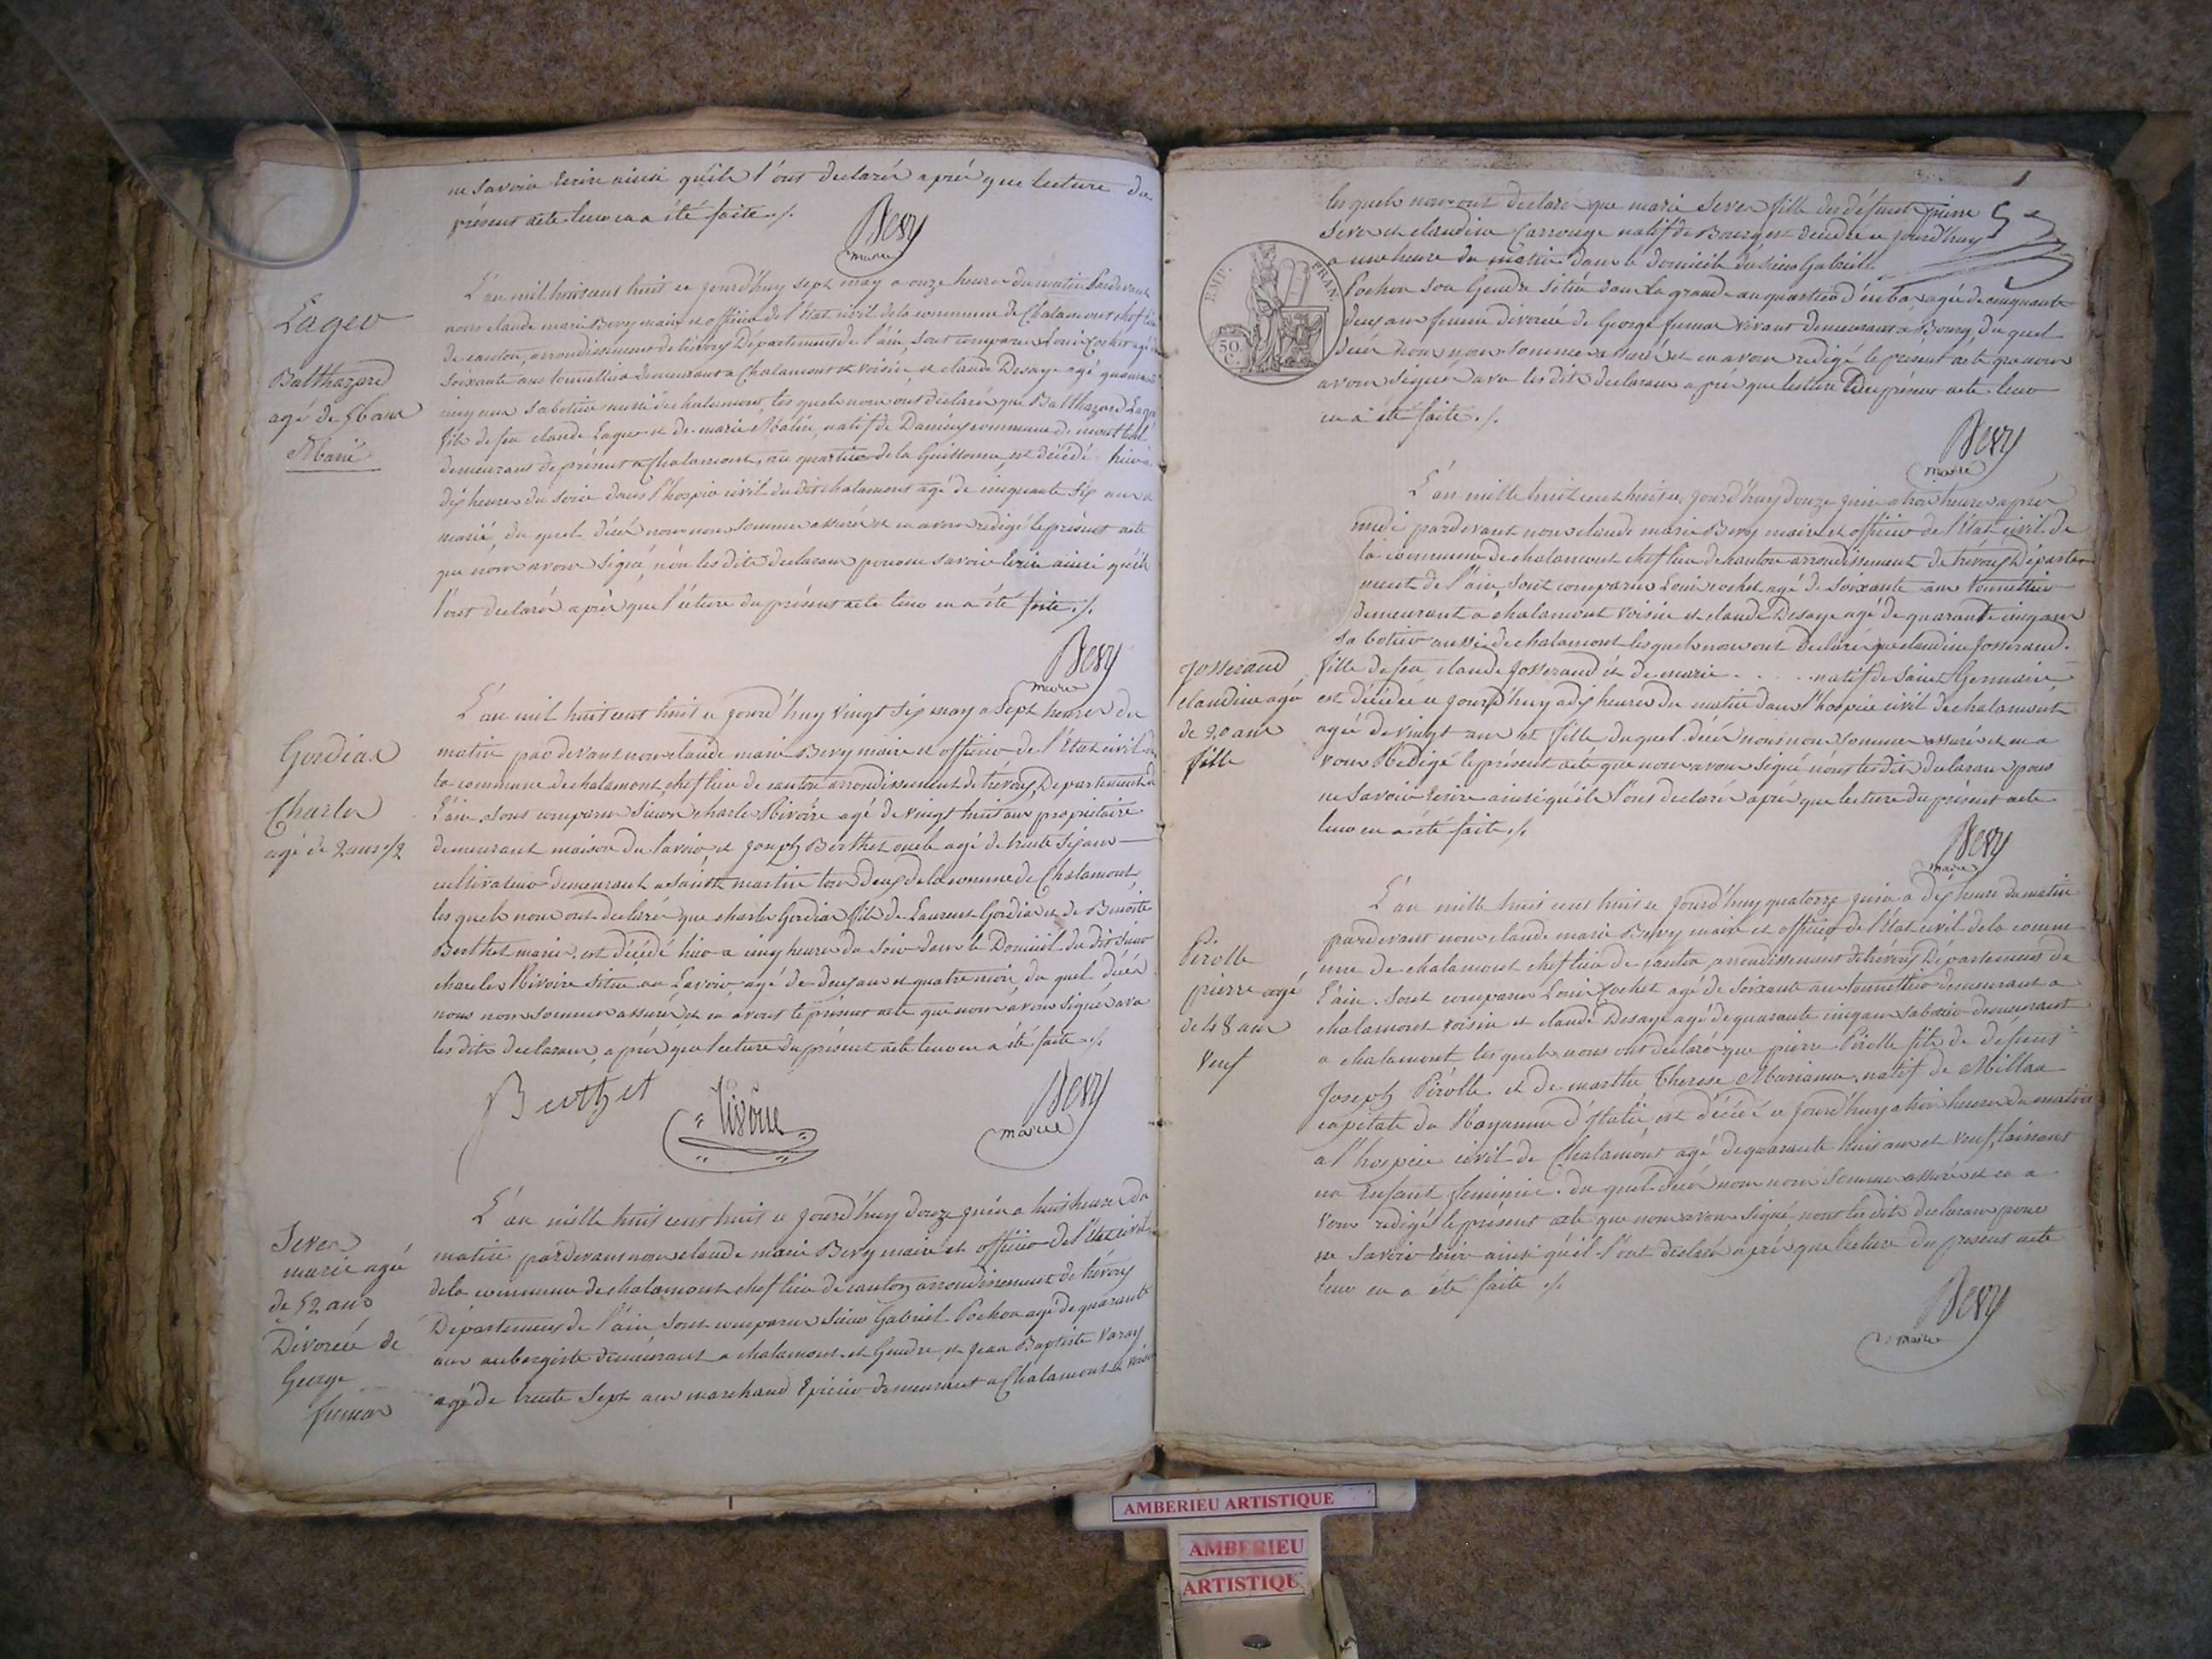 ne savoir Ecrire ainsi qu'ils l'ont declaré après que lecture du
présent acte leur en a été faite ./.
Bevy
maire
Lager
Balthazard
agé de 56 ans
Marié
L'an mil huit cent huit ce jourd'huy sept may a onze heures du matin Pardevant
nous claude marie Bevy maire et officier de l'état civil de la commune de Chalamont chef lieu
de canton, arrondissement de trévoux Département de l'ain, sont comparus Louis Cochet agé de
soixante ans tonnellier demeurant a Chalamont et voisin et claude Desaye agé quarante
cinq ans sabotier aussi de chalamont, les quels nous ont déclaré que Balthazard Lager
fils de feu claude Lager et de marie natif de commune de
demeurant de présent a Chalamont, au quartier de la est décédé hier a
dix heures du soir dans l'hospice civil du dit chalamont agé de cinquante six ans
marié, du quel décé nous nous sommes assuré et en avons redigé le présent acte
que nous avons signé, non les dits declarans pour ne savoir Ecrire ainsi qu'ils
l'ont declaré après que lecture du présent acte leur en a été faite ./.
Bevy
maire
Gordiat
Charles
agé de 2 ans 1/2
L'an mil huit cent huit ce jourd'huy vingt six may a sept heures du
matin par devant nous claude marie Bevy maire et officier de l'état civil de
la commune de chalamont, chef lieu de canton arrondissement de trévoux, Département de
l'ain, sont comparus sieurs charles Rivoire agé de vingt huit ans propriétaire
demeurant maison du lavoir, et joseph Berthet oncle agé de trente six ans
cultivateur demeurant a saint martin tous deux de la commune de Chalamont,
les quels nous ont declaré que charle Gordiat fils de Laurent Gordiat et de Benoite
Berthet mariés est décédé hier a cinq heures du soir dans le Domicile du dit sieur
charles Rivoire situé au Lavoir, agé de deux ans et quatre mois, du quel décés
nous nous sommes assuré, et en avons le présent acte que nous avons signé avec
les dits declarans, après que lecture du présent acte leur en a été faite ./.
Berthet
Rivoire
Bevy
maire
Sever
marie agée
de 52 ans
Divorcée de
George
fumat
L'an mille huit cent huit ce jourd'huy douze juin a huit heures du
matin pardevant nous claude marie Bevy maire et officier de l'état civil
de la commune de chalamont chef lieu de canton arrondissement de trévoux
Département de l'ain, sont comparus sieurs Gabriel Pochon agé de quarante
ans aubergiste demeurant a chalamont et Gendre, et jean Baptiste Varay
agé de trente sept ans marchand Epicier demeurant a Chalamont et voisin
les quels nous ont declaré que marie Sever fille des défunts pierre
Sever et claudine Carrouge natif de Bourg, est décédée ce jourd'huy
a une heure du matin dans le domicile du sieur Gabriel
Pochon son Gendre situé dans la grande au quartier d'en bas agée de cinquante
deux ans femme divorcée de George fumat vivant demeurant a Bourg, du quel
décés nous nous sommes assuré et en avons redigé le présent acte que nous
avons signé avec les dits declarans après que lecture du présent acte leur
en a été faite ./.
EMP. FRAN.
50
C.
Bevy
maire
L'an mille huit cent huit ce jourd'huy douze juin a trois heures après
midi pardevant nous claude marie Bevy maire et officier de l'état civil de
la commune de chalamont chef lieu de canton arrondissement de trévoux Départe
ment de l'ain, sont comparus Louis cochet agé de soixante ans tonnellier
demeurant a chalamont voisin et claude Desaye agé de quarante cinq ans
sabotier aussi de chalamont lesquels nous ont Declaré que claudine Josserand
Josserand
claudine agée
de 20 ans
fille
fille de feu claude Josserand et de marie . . . . natif de Saint Germain
est décédée ce jourd'huy a dix heures du matin dans l'hospice civil de chalamont
agée de vingt ans et fille duquel décés nous nous sommes assuré et en a
vons Redigé le présent acte que nous avons signé non les dits declarans pour
ne savoir Ecrire ainsi qu'ils l'ont declaré après que lecture du présent acte
leur en a été faite ./.
Bevy
maire
Pérolle
pierre agé
de 48 ans
Veuf
L'an mille huit cent huit ce jourd'huy quatorze juin a dix heures du matin
pardevant nous claude marie Bevy maire et officier de l'état civil de la comm
une de chalamont chef lieu de canton, arrondissement de trévoux Département de
l'ain. sont comparus Louis Cochet agé de soixante ans tonnellier demeurant a
chalamont voisin et claude Desaye agé de quarante cinq ans sabotier demeurant
a chalamont les quels nous ont declaré que pierre Pérolle fils de defunt
Joseph Pérolle et de marthe Therese Marianne natif de Millan
capitale du Royaume d'Italie, est décédé ce jourd'huy a trois heures du matin
a l'hospice civil de Chalamont agé de quarante huit ans et veuf, laissant
un Enfant feminin. du quel décés nous nous sommes assuré et en a
vons redigé le présent acte que nous avons signé non les dits declarans pour
ne savoir Ecrire ainsi qu'il l'ont declaré après que lecture du present acte
leur en a été faite ./.
Bevy
maire
AMBERIEU ARTISTIQUE
AMBERIEU
ARTISTIQUE